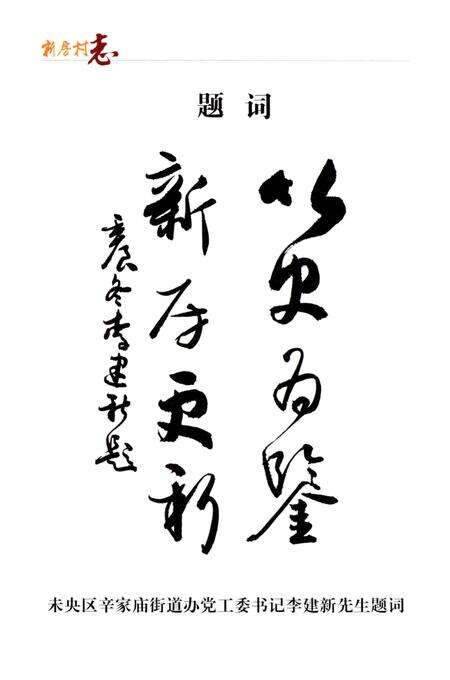 新房村志
题 词
以史为鉴
新房更新
壬辰冬李建新题
未央区辛家庙街道办党工委书记李建新先生题词